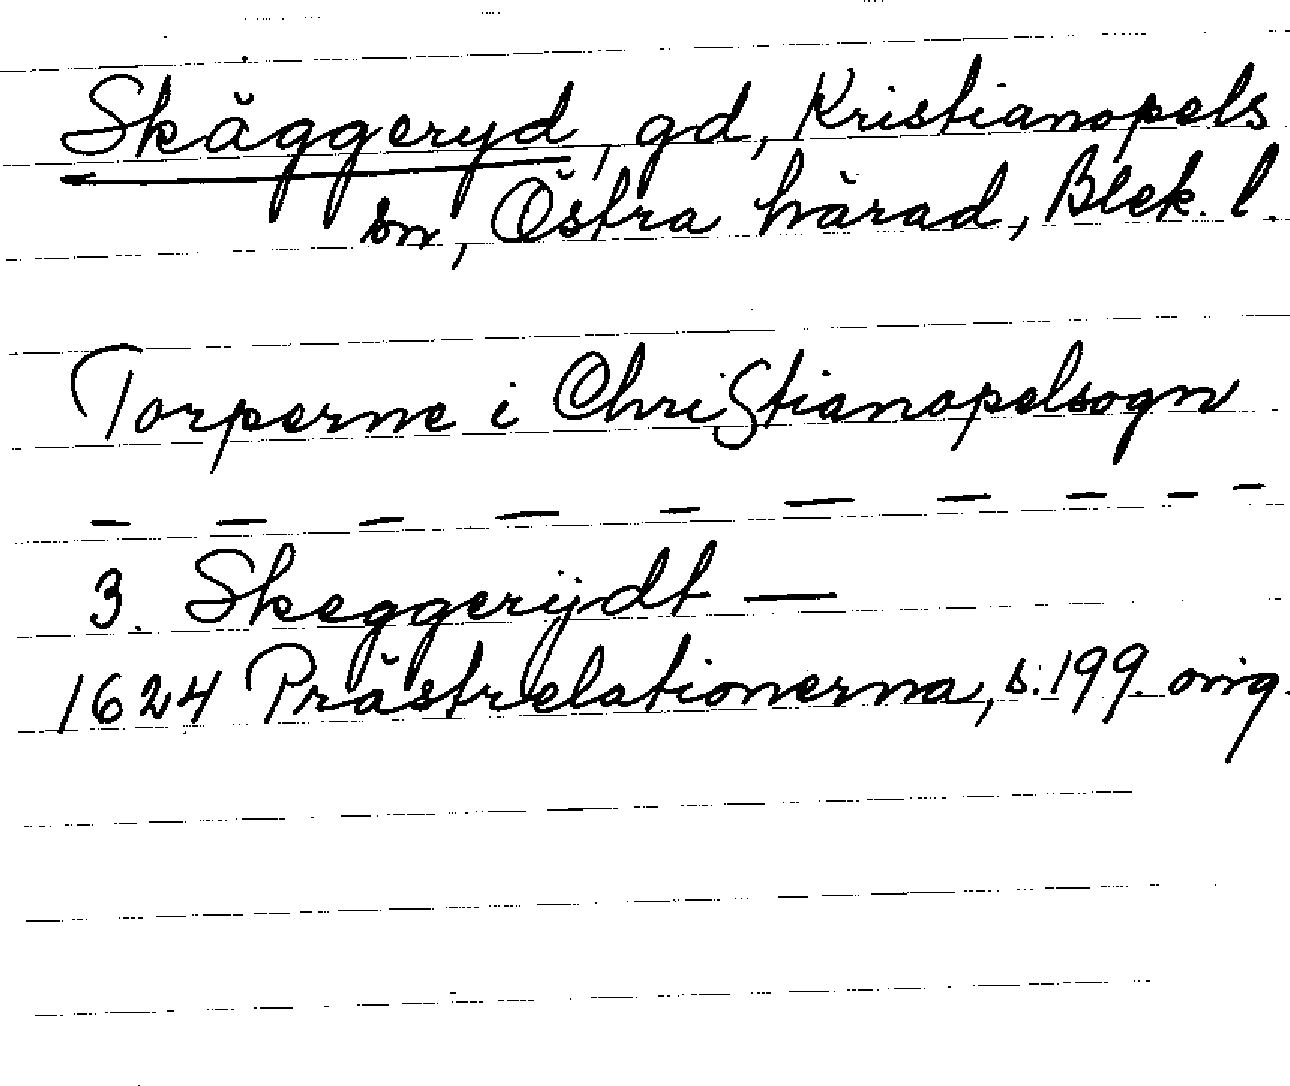 Skäggeryd, gd, Kristianopels
sn, Östra härad, Blek. l.
Torperne i Christianopelsogn
— — — — — — — — —
3. Skeggerÿdt —
1624 Prästrelationerna, s. 199. orig.